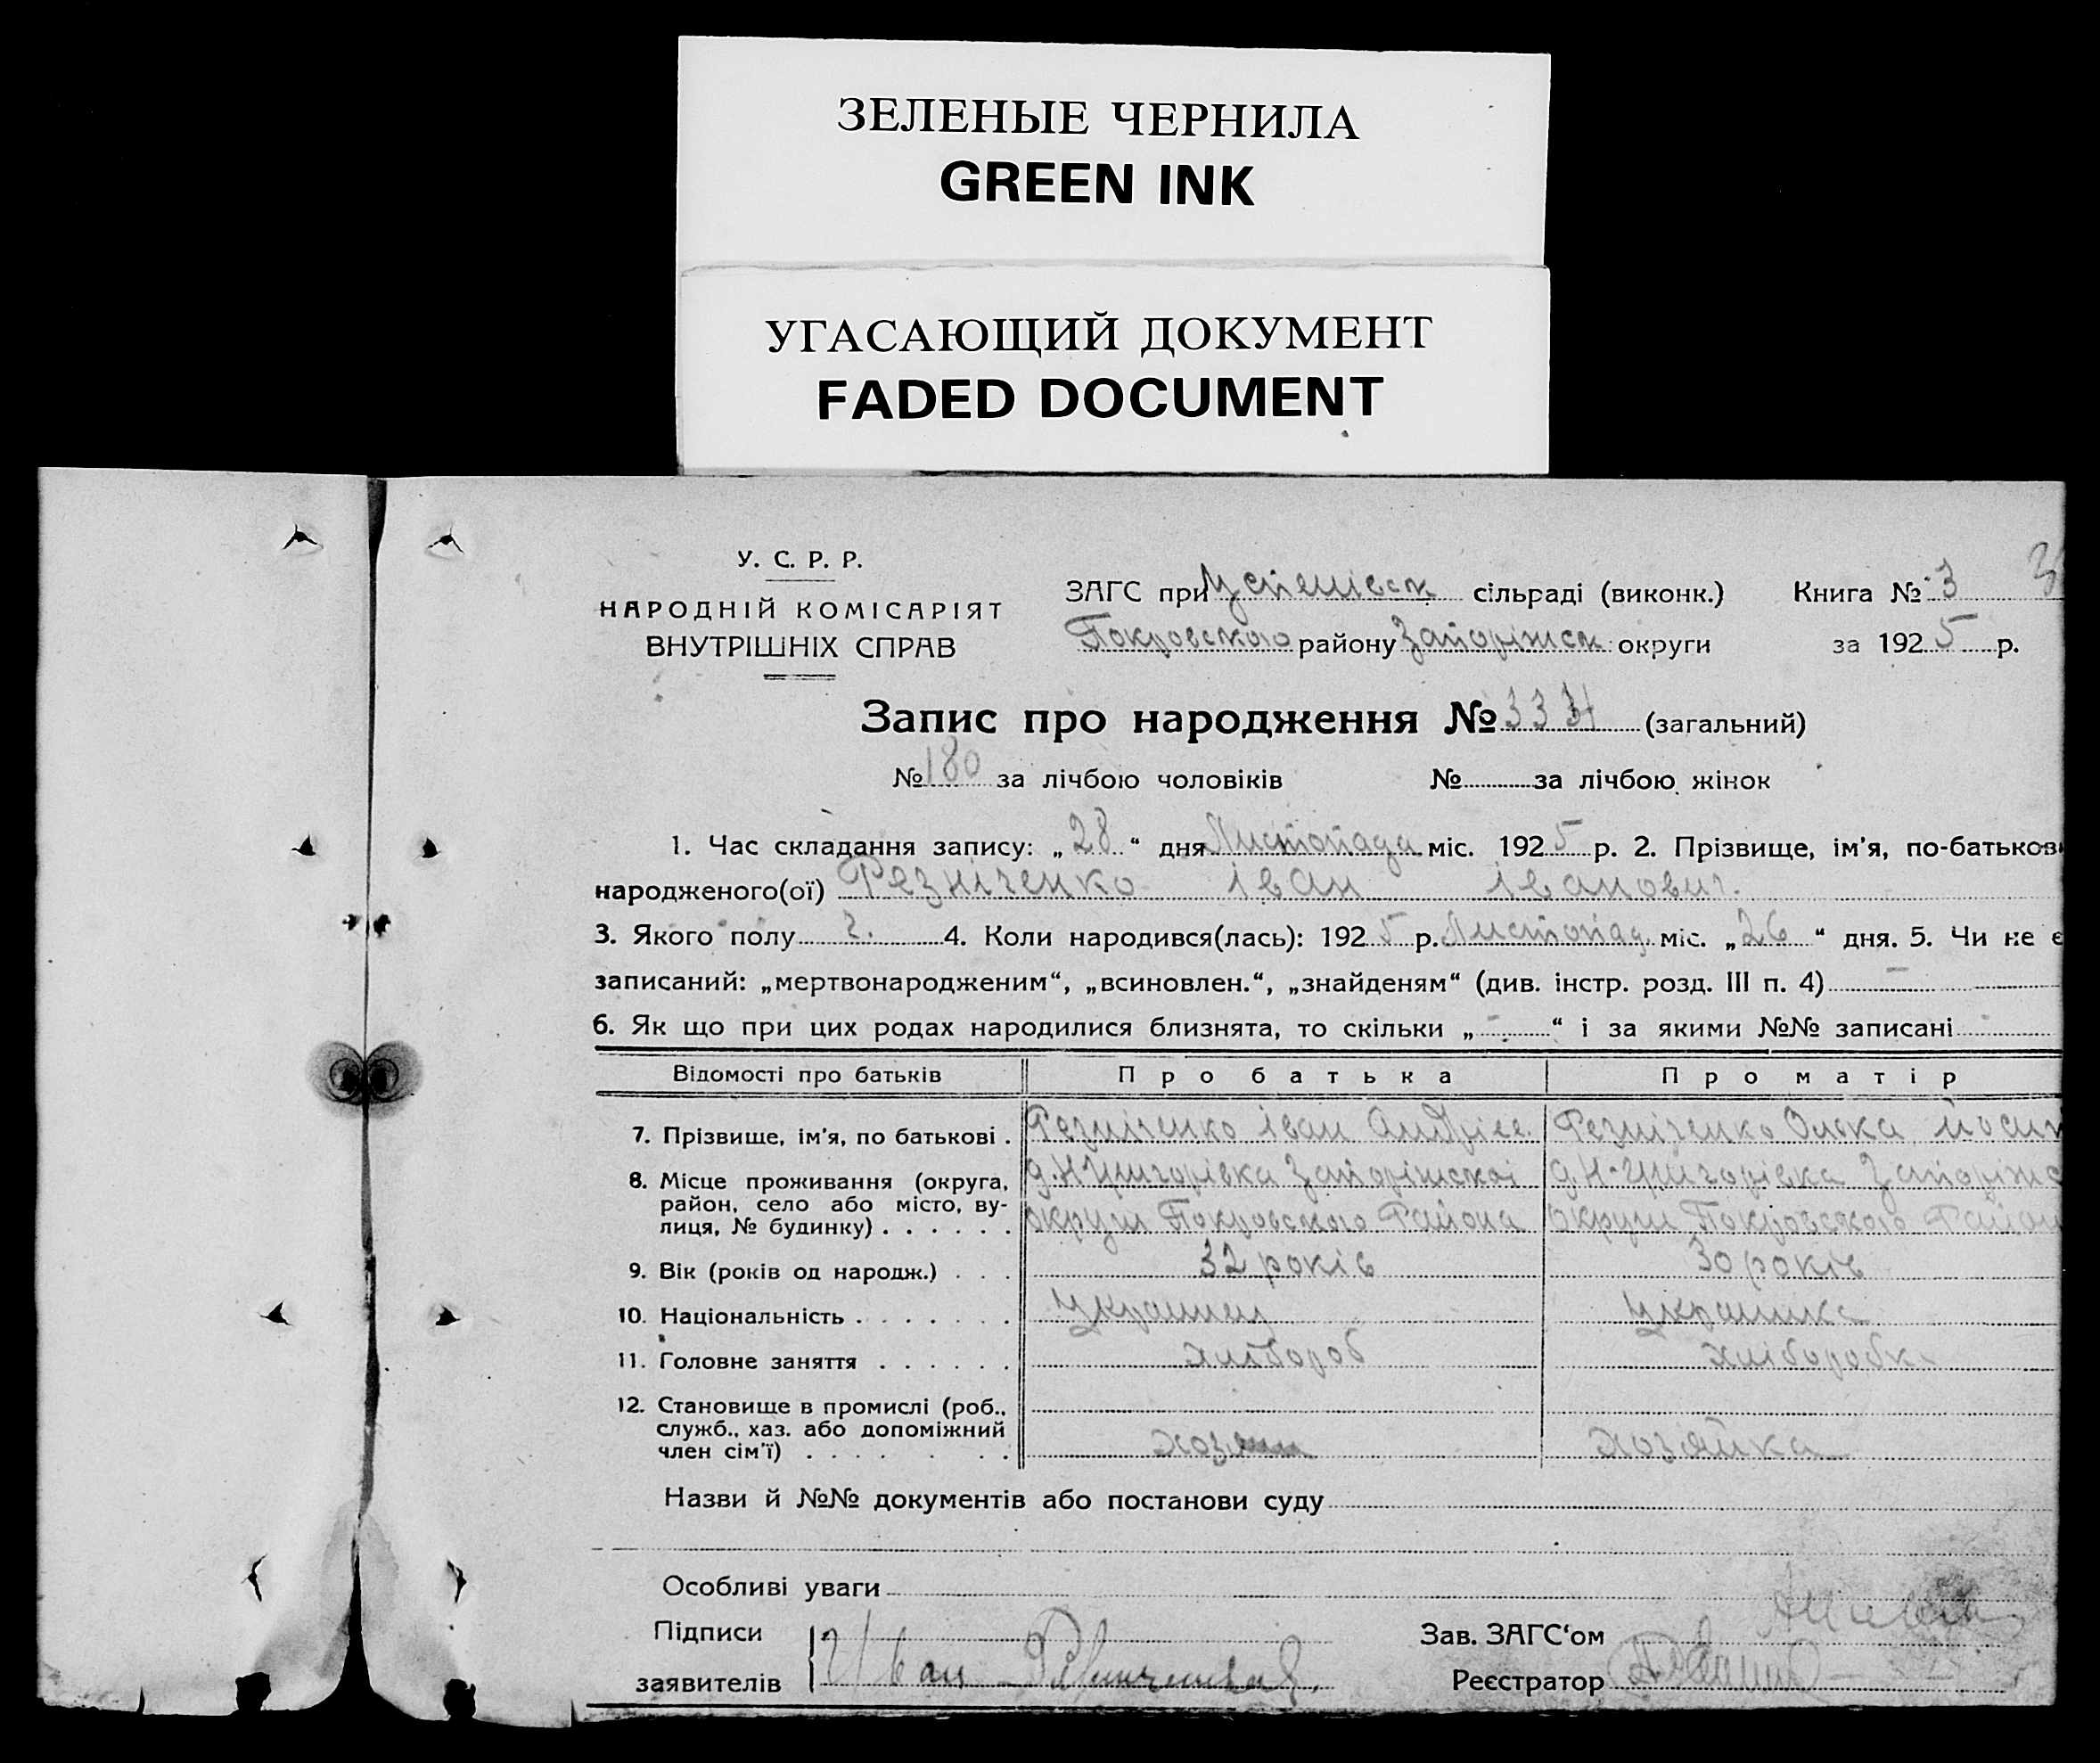 ЗЕЛЕНЫЕ ЧЕРНИЛА
GREEN INK
УГАСАЮЩИЙ ДОКУМЕНТ
FADED DOCUMENT
У. С. Р. Р.
НАРОДНІЙ КОМІСАРІЯТ
ВНУТРІШНІХ СПРАВ
ЗАГС при Успенівськ сільраді (виконк.) Книга № 3
Покровского району Запоріжск округи за 1925 р.
Запис про народження № 333 (загальний)
№ 180 за лічбою чоловіків № за лічбою жінок
1. Час складання запису: „28“ дня Листопада міс. 1925 р. 2. Прізвище, ім'я, по-батькові
народженого(ої) Резніченко Іван Іванович.
3. Якого полу ч. 4. Коли народився(лась): 1925 р. Листопад. міс. „26“ дня. 5. Чи не є
записаний: „мертвонародженим“, „всиновлен.“, „знайденям“ (див. інстр. розд. III п. 4) —
6. Як що при цих родах народилися близнята, то скільки „-“ і за якими №№ записані -
Відомості про батьків Про батька Про матір
7. Прізвище, ім'я, по батькові . Резніченко Іван Андріев. Резніченко Олска Йосип
8. Місце проживання (округа, д. Н Григорівка Запоріжскоі д. Н-Григорівка Запоріжс
район, село або місто, ву-
лиця, № будинку) . . . . . . округи Покровского Района округи Покровского Район
9. Вік (років од народж.) . . . 32 років 30 років
10. Національність . . . . . . . Украинец Украинка
11. Головне заняття . . . . . . хлібороб хліборобка
12. Становище в промислі (роб.,
служб., хаз. або допоміжний
член сім'ї) . . . . . . . хозяин хозяйка
Назви й №№ документів або постанови суду
Особливі уваги
Підписи Зав. ЗАГС'ом
заявителів Иван Реєстратор